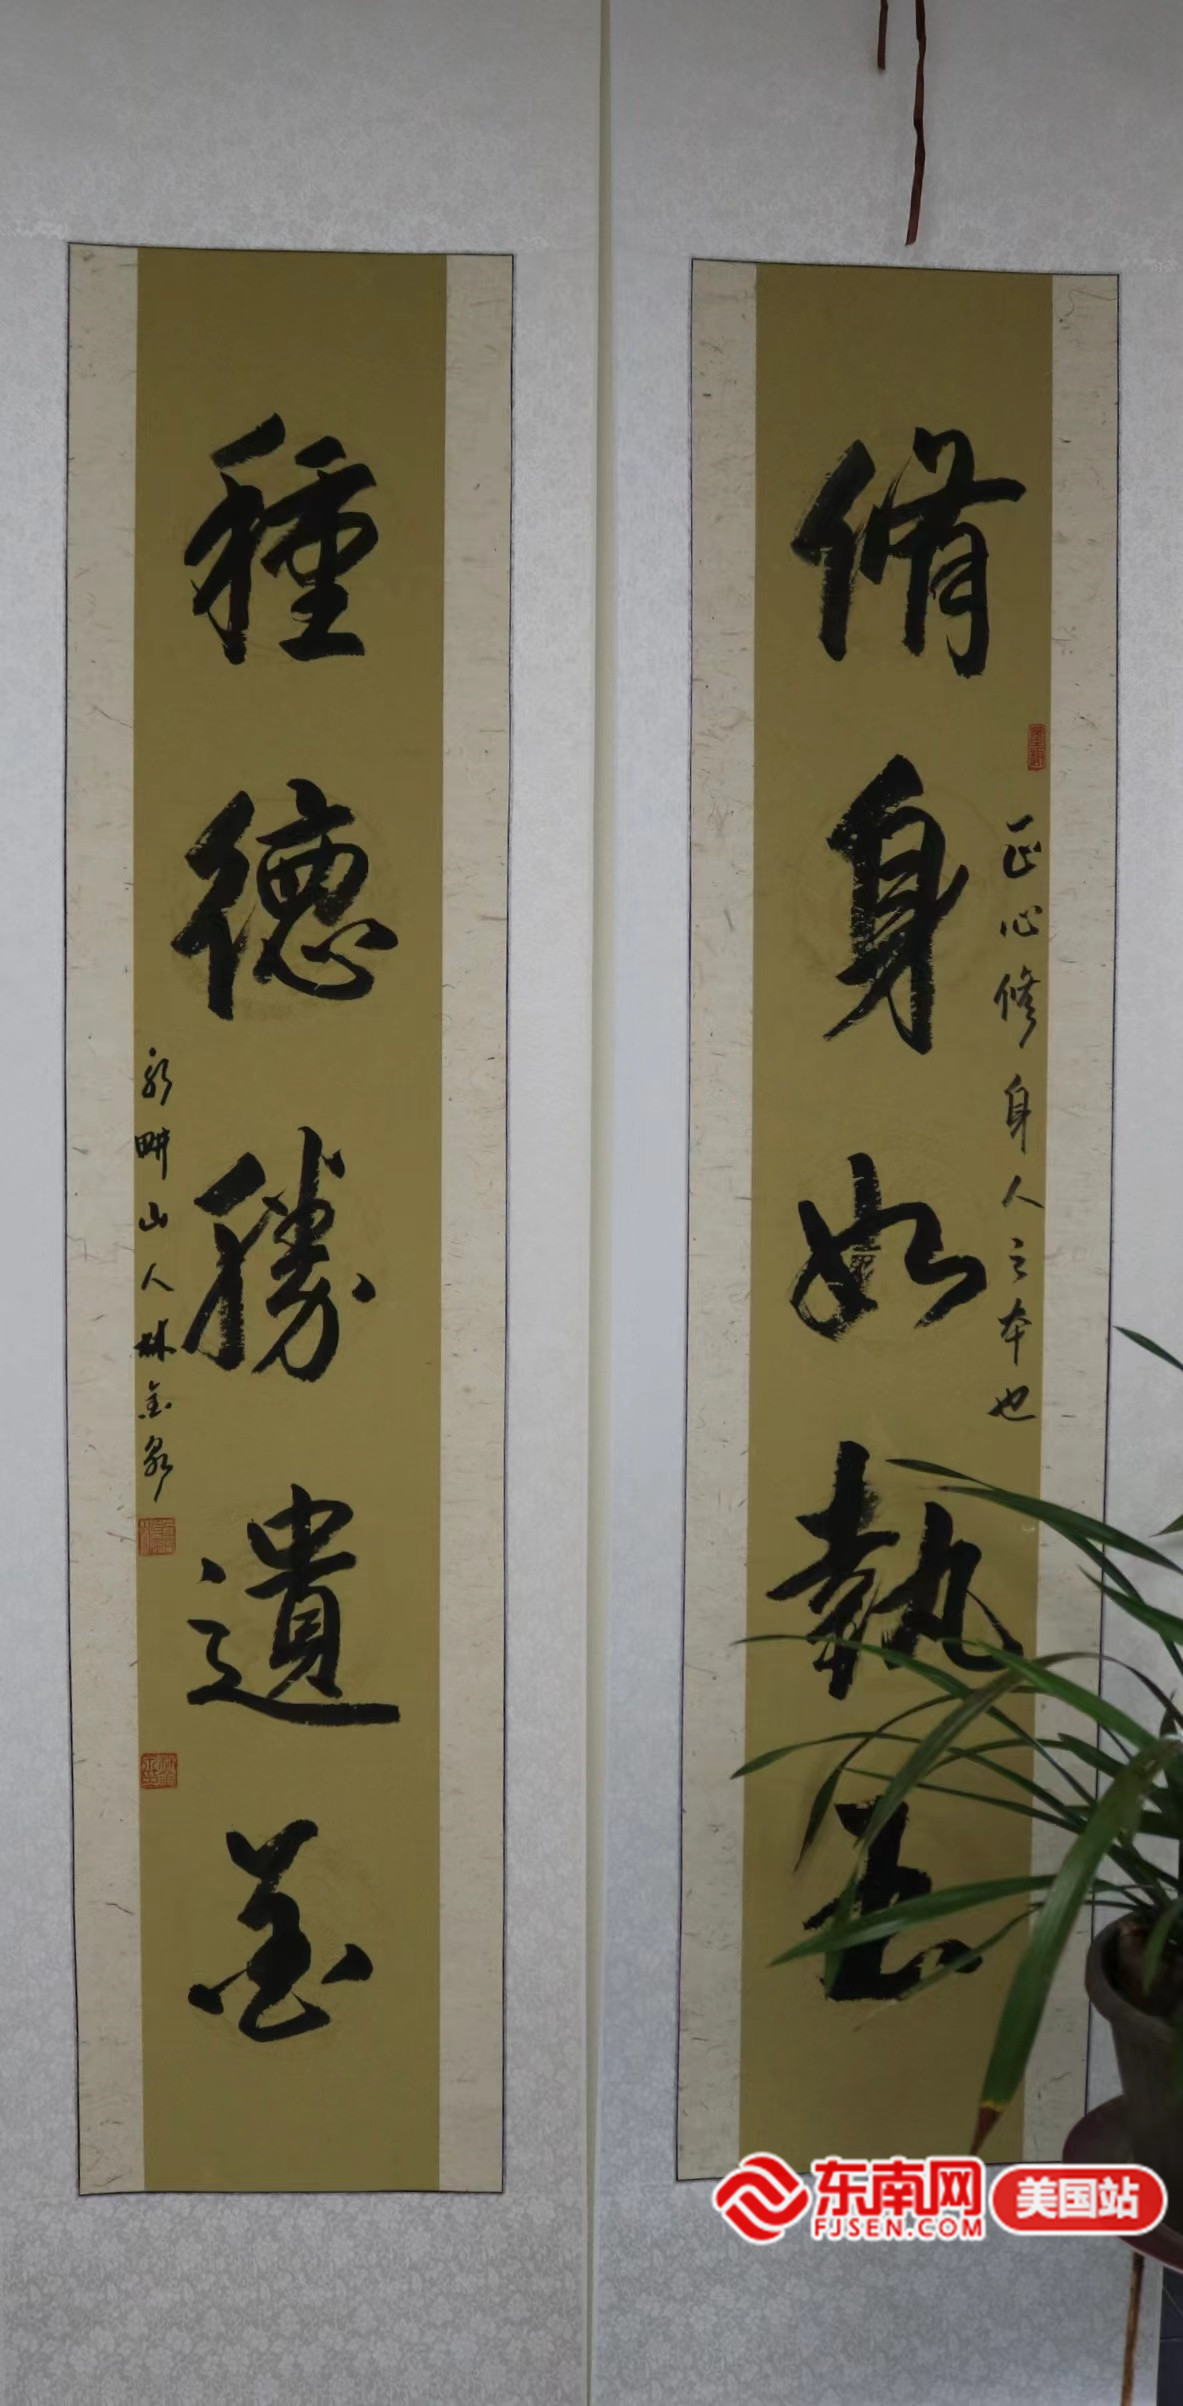 脩身如執玉
正心修身人之本也
種德勝遺金
山人林金泉
东南网
FJSEN.COM
美国站